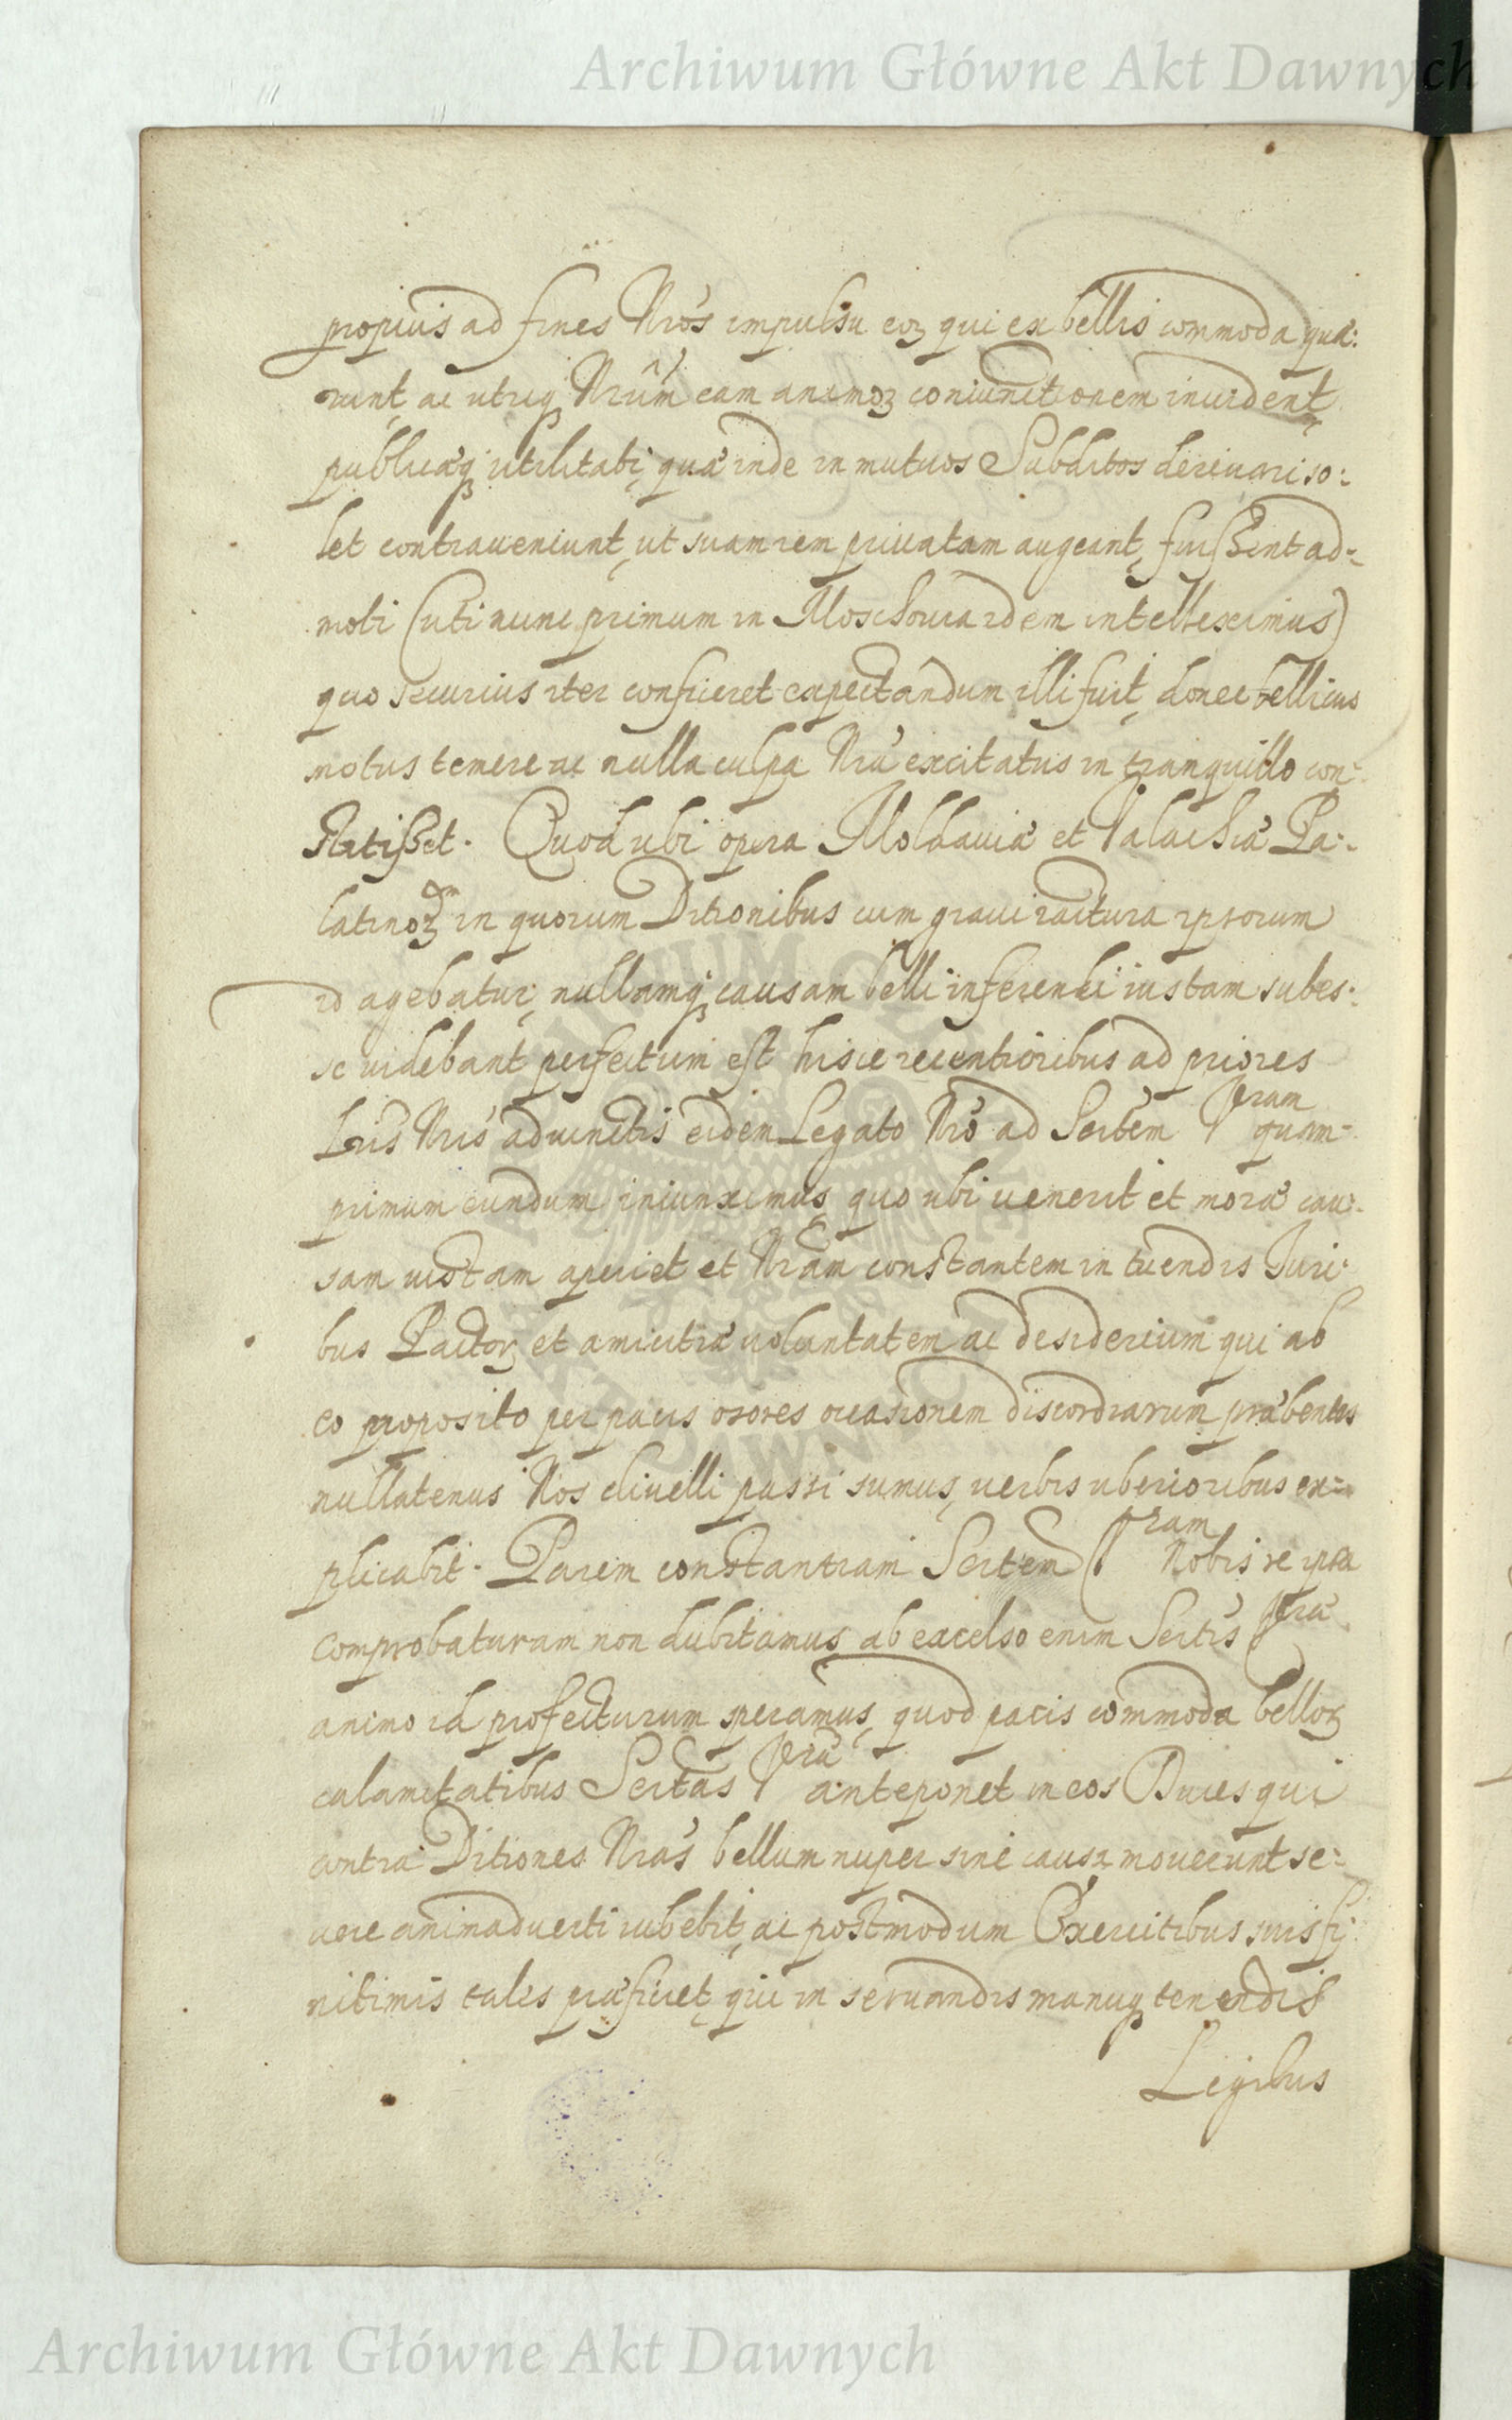 Archiwum Główne Akt Dawnych
propius ad fines Nros impulsu eoꝝ qui ex bellis commoda quæ:
runt, ac utriq Nrûm eam animoꝝ coniunctionem inuident,
publicæq utilitati, quæ inde in mutuos Subditos deriuari so:
let contraueniunt, ut suam rem priuatam augeant, fuissent ad:
moti (uti nunc primum in Moschouia idem intelleximus)
quo securius iter conficeret expectandum illi fuit, donec bellicus
motus temere ac nulla culpa Nrâ excitatus in tranquillo con:
stitisset. Quod ubi opera Moldauiæ et Valachiæ Pa:
latinoꝝ in quorum Ditionibus cum graui iactura ipsorum
id agebatur, nullamq causam belli inferendi iustam subes:
se uidebant perfectum est hisce recentioribus ad priores
Lris Nris adiunctis eidem Legato Nro ad Sertem Vram quam:
primum eundum iniunximus, quo ubi uenerit et moræ cau:
sam iustam aperiet et Nram constantem in tuendis Juri:
bus Pactoꝝ et amicitiæ uoluntatem ac desiderium qui ab
eo proposito per pacis osores occasionem discordiarum præbentes
nullatenus Nos diuelli passi sumus, uerbis uberioribus ex:
plicabit. Parem constantiam Sertem Vram Nobis re ipsa
comprobaturam non dubitamus, ab excelso enim Sertis Vræ
animo id profecturum speramus, quod pacis commoda belloꝝ
calamitatibus Sertas Vra anteponet in eos Duces qui
contra Ditiones Nras bellum nuper sine causa mouerunt se:
uere animaduerti iubebit, ac postmodum Exercitibus suis fi:
nitimis tales præficiet, qui in seruandis manuq tenendis
Legibus
Archiwum Główne Akt Dawnych